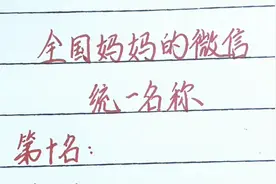 全国妈妈的微信
统一名称
第十名: